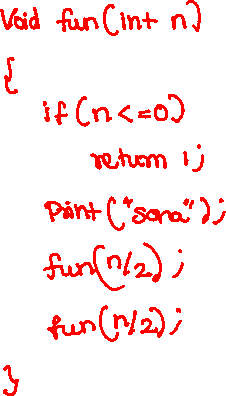 Void fun(int n)
{
if(n<=0)
return 1;
Print("sana");
fun(n/2);
fun(n/2);
}